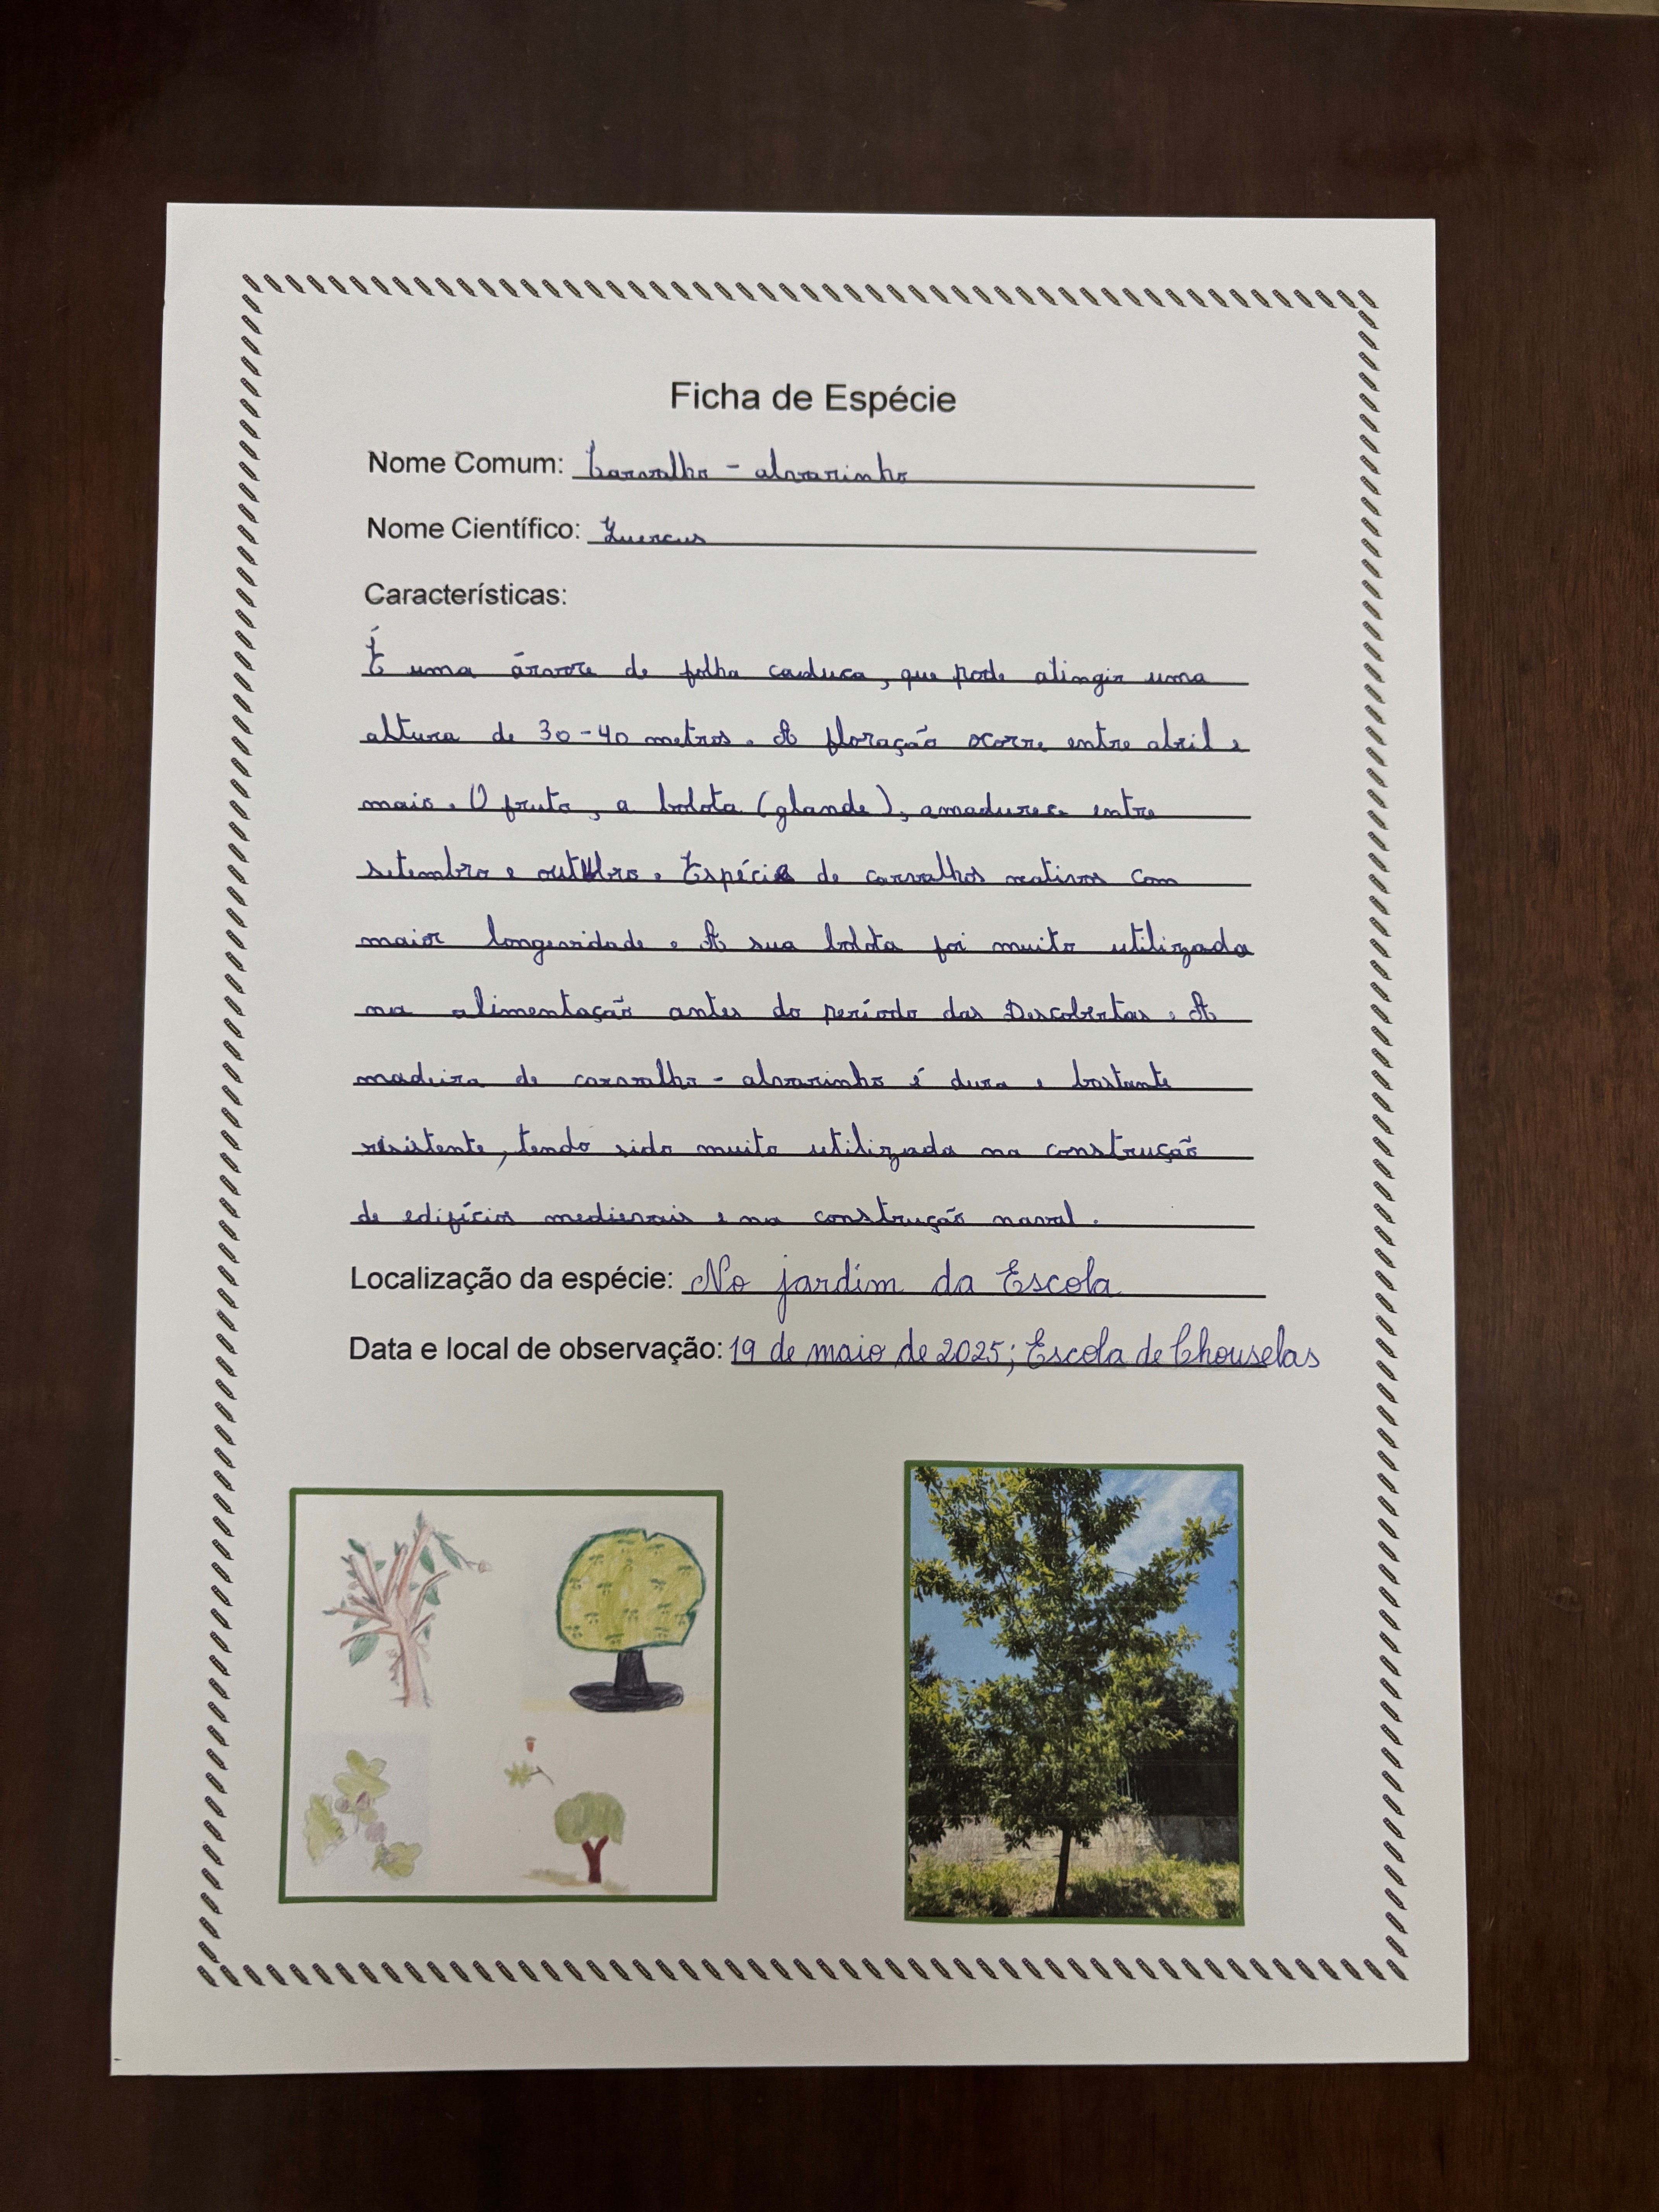 Ficha de Espécie
Nome Comum: Carvalho - alvarinho
Nome Científico: Quercus
Características:
É uma árvore de folha caduca, que pode atingir uma
altura de 30-40 metros. A floração ocorre entre abril e
maio. O fruto, a bolota (glande), amadurece entre
setembro e outubro. Espécie de carvalhos nativos com
maior longevidade. A sua bolota foi muito utilizada
na alimentação antes do período das Descobertas. A
madeira de carvalho - alvarinho é dura e bastante
resistente, tendo sido muito utilizada na construção
de edifícios medievais e na construção naval.
Localização da espécie: No jardim da Escola
Data e local de observação: 19 de maio de 2025; Escola de Chouselas